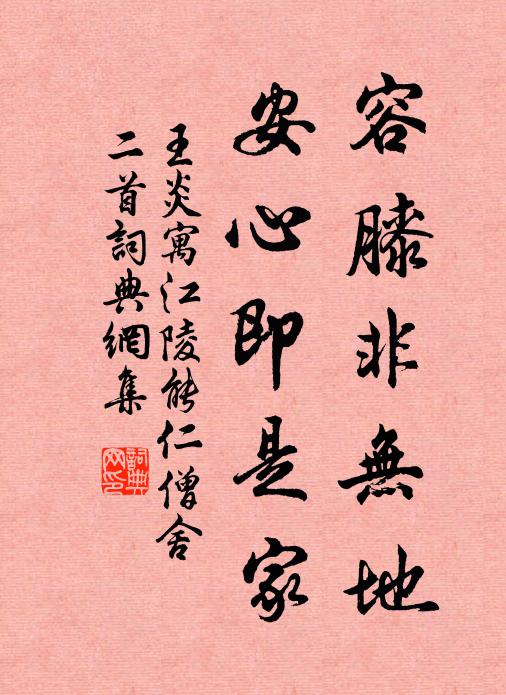 容膝非無地
安心即是家
王炎寓江陵能仁僧舍
二首詞典網集
詞典
网印